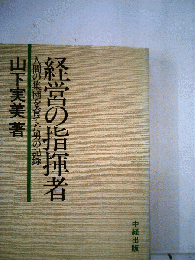 経営の指揮者
人間の集団を各えた男の記録
山下実美 著
中経出版